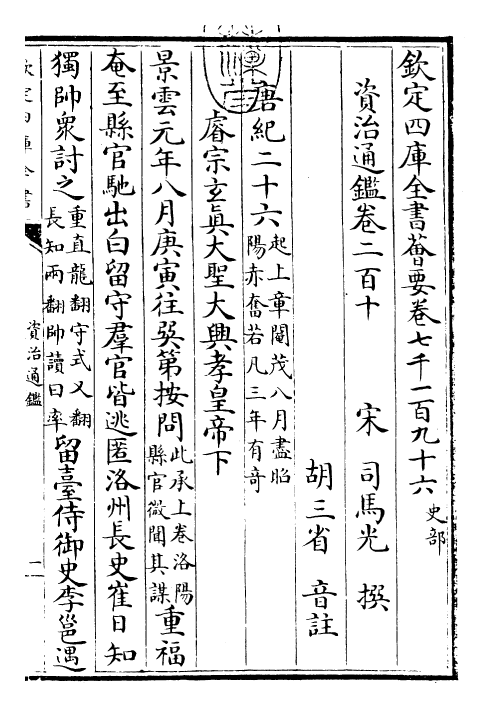 欽定四庫全書薈要卷七千一百九十六 史部
資治通鑑卷二百十
宋 司馬光 撰
胡三省 音註
唐紀二十六 起上章閹茂八月盡昭陽赤奮若凡三年有奇
睿宗玄真大聖大興孝皇帝下
景雲元年八月庚寅往巽第按問 此承上卷洛陽縣官微聞其謀 重福
奄至縣官馳出白留守羣官皆逃匿洛州長史崔日知
獨帥衆討之 重直龍翻守式又翻長知兩翻帥讀曰率 留臺侍御史李邕遇
資治通鑑
二